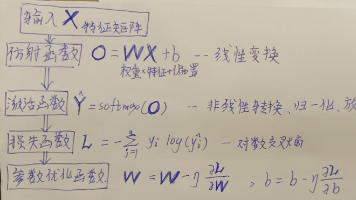 输入 X 特征矩阵
仿射函数 O = WX + b -- 线性变换
权重*特征+偏置
激活函数 Ŷ = softmax(O) -- 非线性转换、归一化、放
损失函数 L = -Σ yi log(ŷi) -- 对数交叉熵
j=1
参数优化函数 W = W - η ∂L/∂W , b = b - η ∂L/∂b